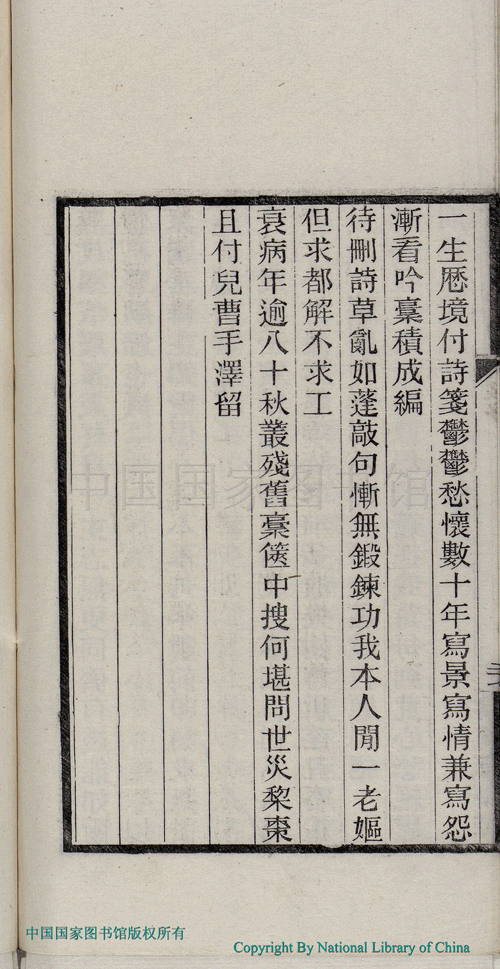 一生厯境付詩箋鬱鬱愁懷數十年寫景寫情兼寫怨
漸看吟稾積成編
待刪詩草亂如蓬敲句慚無鍛鍊功我本人閒一老嫗
但求都解不求工
衰病年逾八十秋叢殘舊稾篋中搜何堪問世災棃棗
且付兒曹手澤留
中国国家图书馆
中国国家图书馆版权所有
Copyright By National Library of China